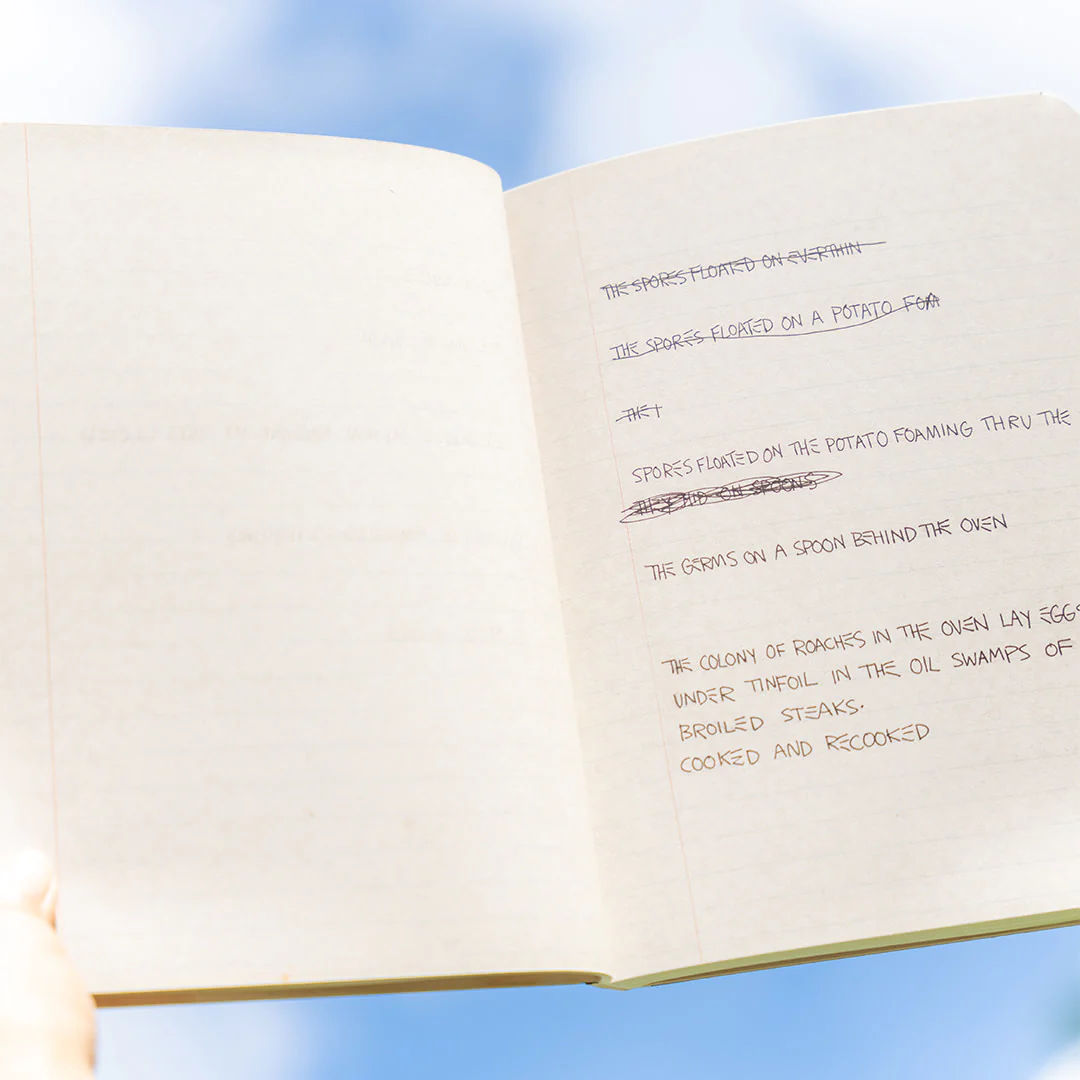 THE SPORES FLOATED ON EVERTHIN
THE SPORES FLOATED ON A POTATO FOA
THE
SPORES FLOATED ON THE POTATO FOAMING THRU THE
THEY HID ON SPOONS
THE GERMS ON A SPOON BEHIND THE OVEN
THE COLONY OF ROACHES IN THE OVEN LAY EGGS
UNDER TINFOIL IN THE OIL SWAMPS OF
BROILED STEAKS.
COOKED AND RECOOKED